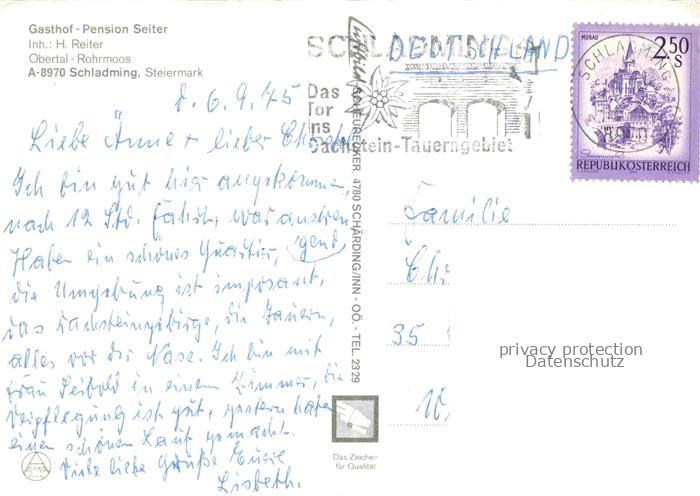 Gasthof - Pension Seiter
Inh.: H. Reiter
Obertal - Rohrmoos
A-8970 Schladming, Steiermark
d. 6.9.75
Liebe Änne + lieber
Ich bin gut hier angekommen,
nach 12 Std. Fahrt, war anstren-
gend
Haben ein schönes Quartier,
die Umgebung ist imposant,
das Dachsteingebirge, die Tauern,
alles vor der Nase. Ich bin mit
Frau Seibold in einem Zimmer, die
Verpflegung ist gut, gestern haben
einen schönen Lauf gemacht.
Viele liebe Grüße Eure
Lisbeth.
SCHEURECKER, 4780 SCHÄRDING/INN - OÖ. - TEL. 2329
Das Zeichen
für Qualität
SCHLADMING
DEUTSCHLAND
Das
Tor
ins
Dachstein-Tauerngebiet
SCHLADMING
MURAU
2.50
S
REPUBLIK ÖSTERREICH
Familie
35
privacy protection
Datenschutz